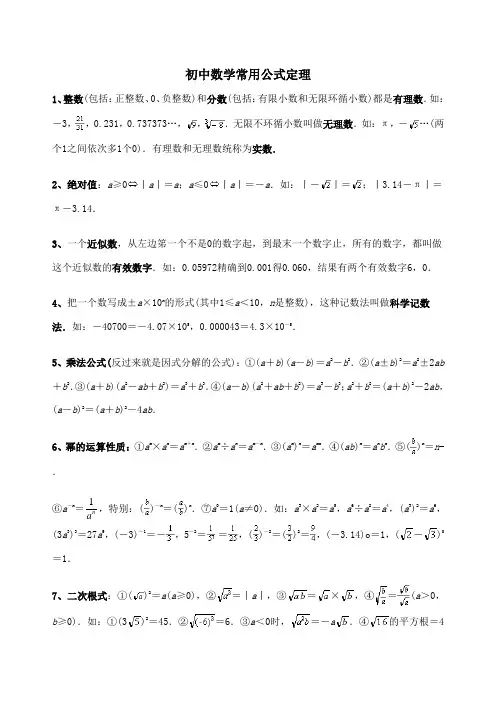 初中数学常用公式定理
1、整数(包括:正整数、0、负整数)和分数(包括:有限小数和无限环循小数)都是有理数.如:
-3,,0.231,0.737373…,,.无限不环循小数叫做无理数.如:π,-…(两
个1之间依次多1个0).有理数和无理数统称为实数.
2、绝对值:a≥0⇔|a|=a;a≤0⇔|a|=-a.如:|-√2|=√2;|3.14-π|=
π-3.14.
3、一个近似数,从左边笫一个不是0的数字起,到最末一个数字止,所有的数字,都叫做
这个近似数的有效数字.如:0.05972精确到0.001得0.060,结果有两个有效数字6,0.
4、把一个数写成±a×10ⁿ的形式(其中1≤a<10,n是整数),这种记数法叫做科学记数
法.如:-40700=-4.07×10⁵,0.000043=4.3×10⁻⁵.
5、乘法公式(反过来就是因式分解的公式):①(a+b)(a-b)=a²-b².②(a±b)²=a²±2ab
+b².③(a+b)(a²-ab+b²)=a³+b³.④(a-b)(a²+ab+b²)=a³-b³;a²+b²=(a+b)²-2ab,
(a-b)²=(a+b)²-4ab.
6、幂的运算性质:①aᵐ×aⁿ=aᵐ⁺ⁿ.②aᵐ÷aⁿ=aᵐ⁻ⁿ.③(aᵐ)ⁿ=aᵐⁿ.④(ab)ⁿ=aⁿbⁿ.⑤(b/a)ⁿ=n-
.
⑥a⁻ⁿ=1/aⁿ,特别:(b/a)⁻ⁿ=(a/b)ⁿ.⑦a⁰=1(a≠0).如:a³×a²=a⁵,a⁶÷a²=a⁴,(a³)²=a⁶,
(3a³)³=27a⁹,(-3)⁻¹=-1/3,5⁻²==,(2/3)⁻²=(3/2)²=9/4,(-3.14)o=1,(√2-√3)⁰
=1.
7、二次根式:①(√a)²=a(a≥0),②=|a|,③√ab=√a×√b,④√(b/a)=√b/√a(a>0,
b≥0).如:①(3√5)²=45.②=6.③a<0时,=-a√b.④√16的平方根=4